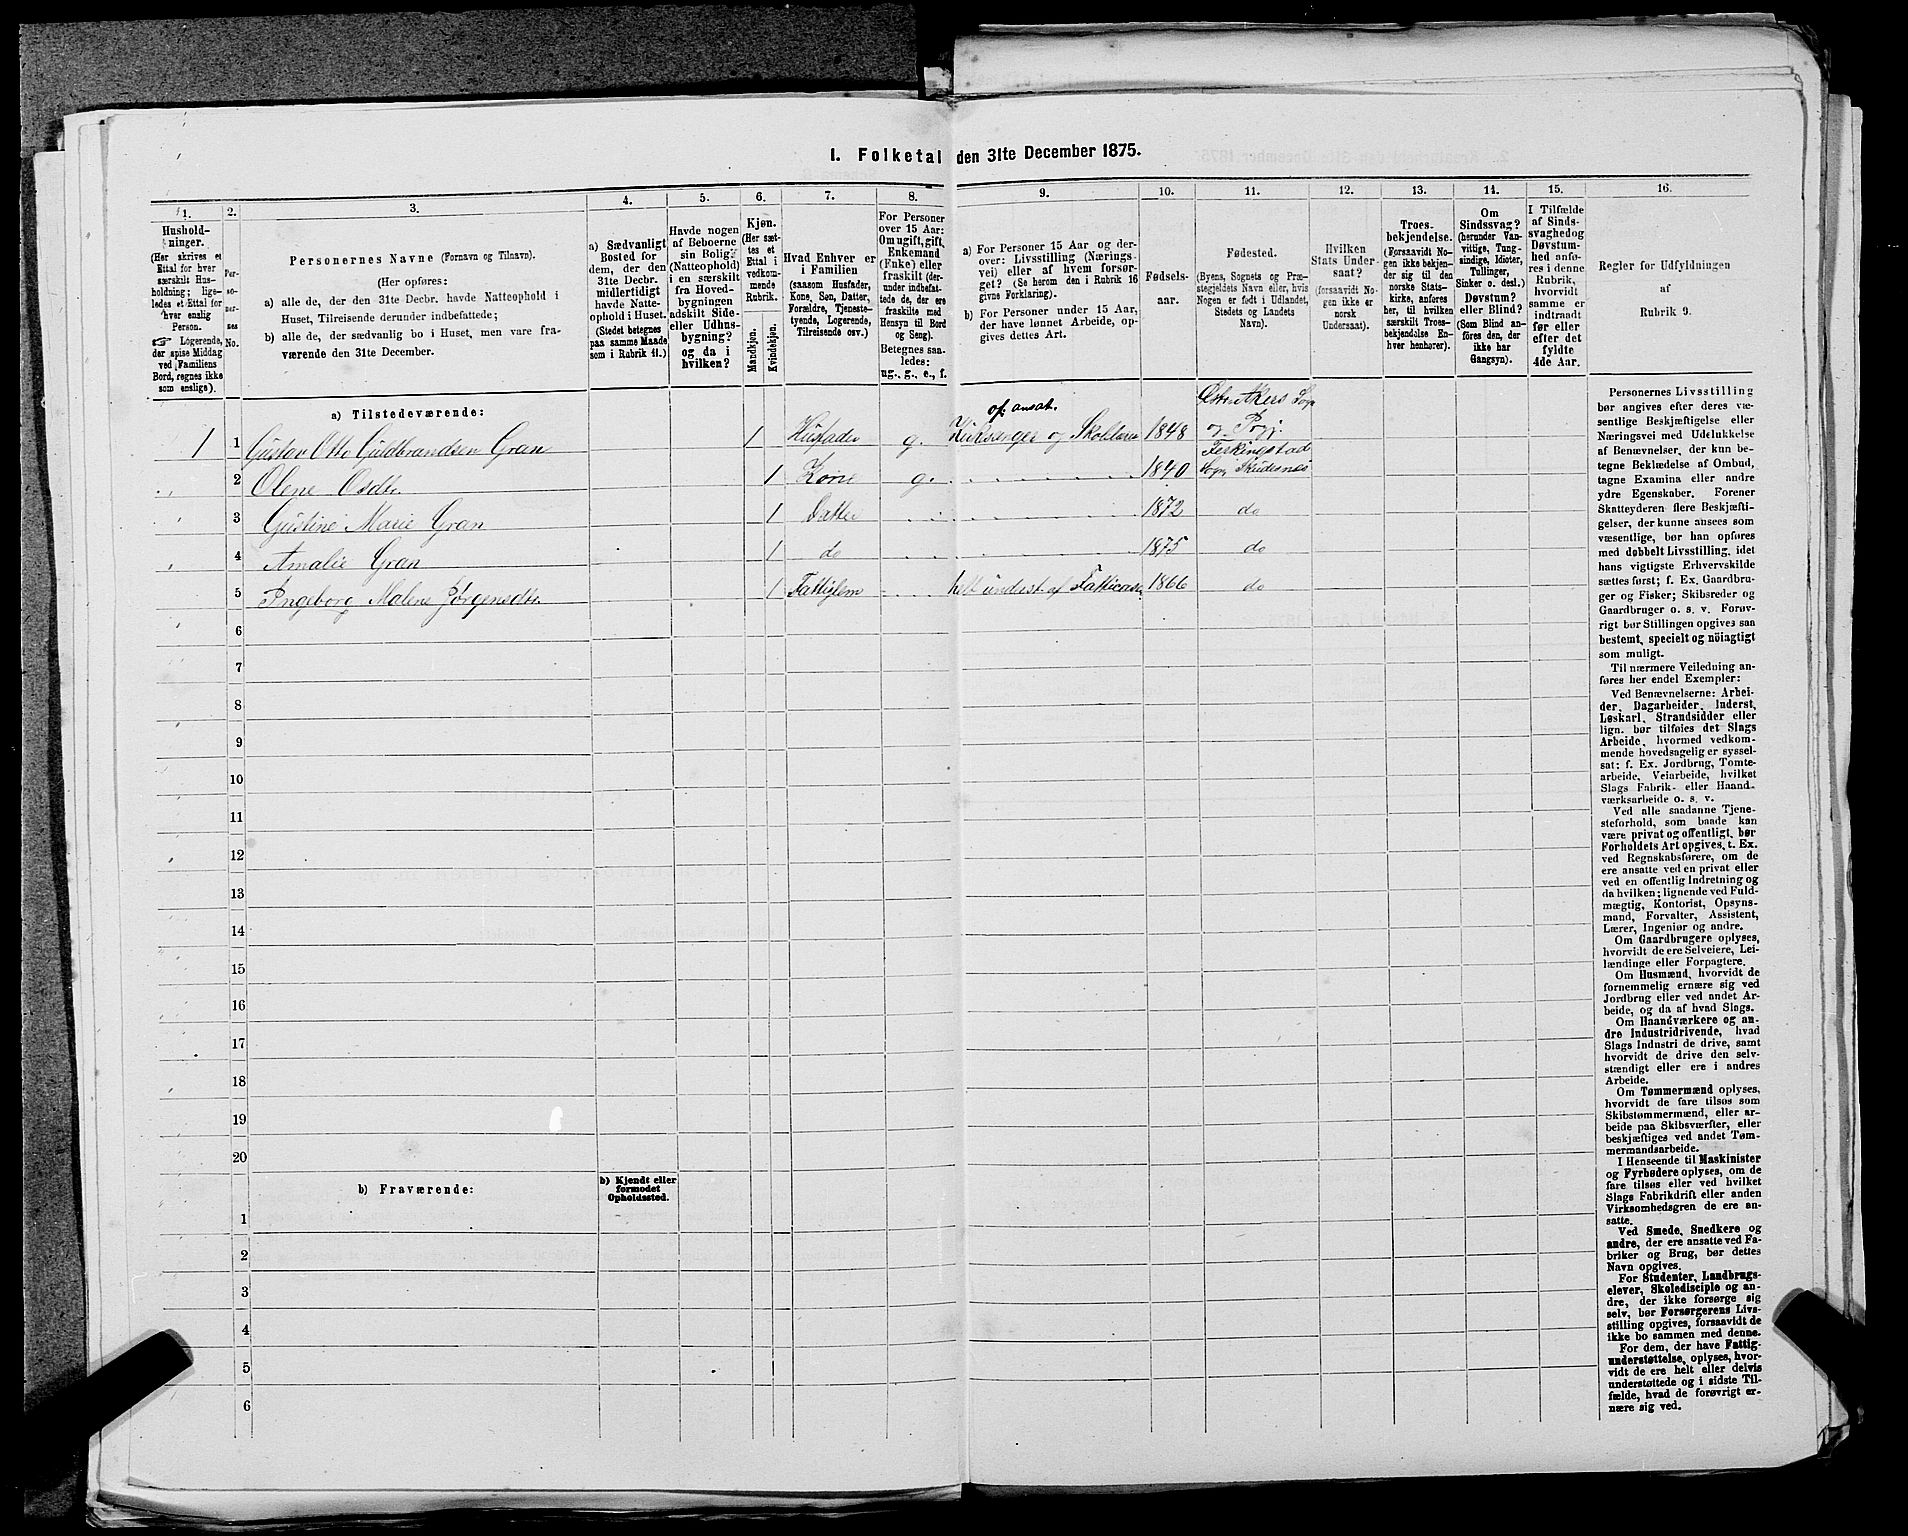 I. Folketal den 31te December 1875.
1. 2. 3. 4. 5. 6. 7. 8. 9. 10. 11. 12. 13. 14. 15. 16.
Hushold-
ninger.
(Her skrives et
Ettal for hver
særskilt Hus-
holdning; lige-
ledes et Ettal for
hver enslig
Person.
☞ Logerende,
der spise Middag
ved Familiens
Bord, regnes ikke
som enslige).
Per-
so-
ner-
nes
No.
Personernes Navne (Fornavn og Tilnavn).
(Her opføres:
a) alle de, der den 31te Decbr. havde Natteophold i
Huset, Tilreisende derunder indbefattede;
b) alle de, der sædvanlig bo i Huset, men vare fra-
værende den 31te December.
a) Sædvanligt
Bosted for
dem, der den
31te Decbr.
midlertidigt
havde Natte-
ophold i Huset.
(Stedet betegnes
paa samme Maade
som i Rubrik 11.)
Havde nogen
af Beboerne
sin Bolig
(Natteophold)
i en særskilt
fra Hoved-
bygningen
adskilt Side-
eller Udhus-
bygning?
og da i
hvilken?
Kjøn.
(Her sæt-
tes et
Ettal i
vedkom-
mende
Rubrik.
Mandkjøn.
Kvindekjøn.
Hvad Enhver er
i Familien
(saasom Husfader,
Kone, Søn, Datter,
Forældre, Tjeneste-
tyende, Logerende,
Tilreisende osv.)
For Personer
over 15 Aar:
Om ugift, gift,
Enkemand
(Enke) eller
fraskilt (der-
under indbefat-
tede de, der ere
fraskilte med
Hensyn til Bord
og Seng).
Betegnes saa-
ledes:
ug., g., e., f.
a) For Personer 15 Aar og der-
over: Livsstilling (Nærings-
vei) eller af hvem forsør-
get? (Se herom den i Rubrik 16
givne Forklaring).
b) For Personer under 15 Aar,
der have lønnet Arbeide, op-
gives dettes Art.
Fødsels-
aar.
Fødested.
(Byens, Sognets og Præ-
stegjeldets Navn eller, hvis
Nogen er født i Udlandet,
Stedets og Landets
Navn).
Hvilken
Stats Under-
saat?
(forsaavidt No-
gen ikke er
norsk
Undersaat).
Troes-
bekjendelse.
(Forsaavidt No-
gen ikke bekjen-
der sig til den
norske Stats-
kirke, anføres
her, til hvilken
særskilt Troes-
bekjendelse En-
hver henhører).
Om
Sindssvag?
(herunder Van-
vittige, Tung-
sindige, Idioter,
Tullinger,
Sinker o. desl.)
Døvstum?
eller Blind?
(Som Blind an-
føres den, der
ikke har
Gangsyn).
I Tilfælde
af Sinds-
svaghed og
Døvstum-
hed anfø-
res i denne
Rubrik,
hvorvidt
samme er
indtraadt
før eller
efter det
fyldte
4de Aar.
Regler for Udfyldningen
af
Rubrik 9.
a) Tilstedeværende:
of. ansat.
1 1 Gustav Otto Guldbrandsen Gran 1 Husfader g. Kirkesanger og 1848 Akers Sogn og Prgj.
2 Olene Osdtr. 1 Kone g. 1840 Ferkingstad Sogn, Skudesnes
3 Gustine Marie Gran 1 Datter 1872 do
4 Amalie Gran 1 do 1875 do
5 Ingeborg Malene Jørgensdtr. 1 Fattiglem helt underst. af 1866 do
6
7
8
9
10
11
12
13
14
15
16
17
18
19
20
b) Fraværende:
b) Kjendt eller
formodet
Opholdssted.
1
2
3
4
5
6
Personernes Livsstilling
bør angives efter deres væ-
sentlige Beskjæftigelse eller
Næringsvei med Udelukkelse
af Benævnelser, der kun be-
tegne Beklædelse af Ombud,
tagne Examina eller andre
ydre Egenskaber. Forener
Skatteyderen flere Beskjæfti-
gelser, der kunne ansees som
væsentlige, bør han opføres
med dobbelt Livsstilling, idet
hans vigtigste Erhvervskilde
sættes først; f. Ex. Gaardbru-
ger og Fisker; Skibsreder og
Gaardbruger o. s. v. Forøv-
rigt bør Stillingen opgives saa
bestemt, specielt og nöiagtigt
som muligt.
Til nærmere Veiledning an-
føres her endel Exempler:
Ved Benævnelserne: Arbei-
der, Dagarbeider, Inderst,
Løskarl, Strandsidder eller
lign. bør tilføies det Slags
Arbeide, hvormed vedkom-
mende hovedsagelig er syssel-
sat; f. Ex. Jordbrug, Tomte-
arbeide, Veiarbeide, hvilket
Slags Fabrik- eller Haand-
værksarbeide o. s. v.
Ved alle saadanne Tjene-
steforhold, som baade kan
være privat og offentligt, bør
Forholdets Art opgives, t. Ex.
ved Regnskabsførere, om de
ere ansatte ved en privat eller
ved en offentlig Indretning og
da hvilken; lignende ved Fuld-
mægtig, Kontorist, Opsyns-
mand, Forvalter, Assistent,
Lærer, Ingeniør og andre.
Om Gaardbrugere oplyses,
hvorvidt de ere Selveiere, Lei-
lændinge eller Forpagtere.
Om Husmænd, hvorvidt de
fornemmelig ernære sig ved
Jordbrug eller ved andet Ar-
beide, og da af hvad Slags.
Om Haandværkere og an-
dre Industridrivende, hvad
Slags Industri de drive, samt
hvorvidt de drive den selv-
stændigt eller ere i andres
Arbeide.
Om Tømmermænd oplyses,
hvorvidt de fare tilsøs som
Skibstømmermænd, eller ar-
beide paa Skibsværfter, eller
beskjæftiges ved andet Tøm-
mermandsarbeide.
I Henseende til Maskinister
og Fyrbødere oplyses, om de
fare tilsøs eller ved hvilket
Slags Fabrikdrift eller anden
Virksomhedsgren de ere an-
satte.
Ved Smede, Snedkere og
andre, der ere ansatte ved Fa-
briker og Brug, bør dettes
Navn opgives.
For Studenter, Landbrugs-
elever, Skoledisciple og an-
dre, der ikke forsørge sig
selv, bør Forsørgerens Livs-
stilling opgives, forsaavidt de
ikke bo sammen med denne.
For dem, der have Fattig-
understøttelse, oplyses, hvor-
vidt de ere helt eller delvis
understøttede og i sidste Til-
fælde, hvad de forøvrigt er-
nære sig ved.